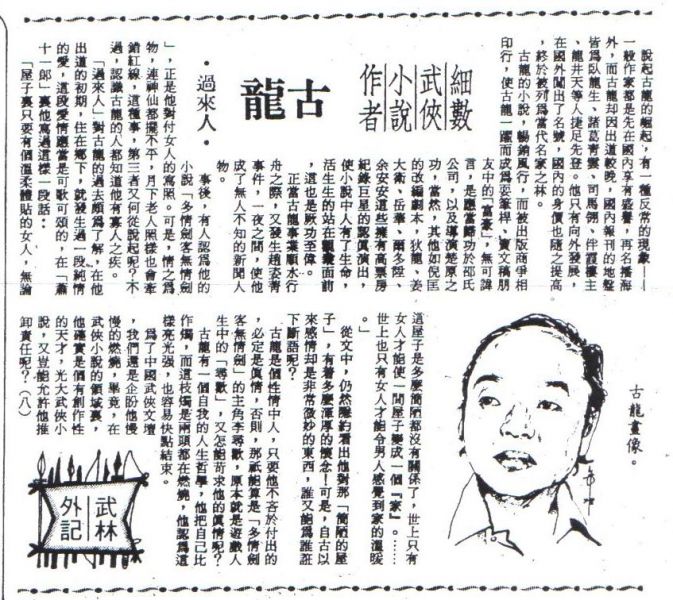 細數
武俠
小說
作者
古龍
•過來人•
說起古龍的崛起,有一種反常的現象——
一般作家都是先在國內享有盛譽,再名播海
外,而古龍却因出道較晚,國內報刊的地盤
皆爲臥龍生、諸葛青雲、司馬翎、伴霞樓主
、龍井天等人捷足先登。他只有向外發展,
在國外闖出了名號,國內的身價也隨之提高
,終於被列爲當代名家之林。
古龍的小說,暢銷風行,而被出版商爭相
印行,使古龍一躍而成爲耍筆桿、賣文稿朋
友中的「富豪」,無可諱
言,是應當歸功於邵氏
公司,以及導演楚原之
功,當然,其他如倪匡
的改編劇本,狄龍、姜
大衛、岳華、爾多陞、
余安安這些擁有高票房
紀錄巨星的認眞演出,
使小說中人有了生命,
活生生的站在觀衆面前
,這也是厥功至偉。
正當古龍事業順水行
舟之際,又發生趙姿菁
事件,一夜之間,使他
成了無人不知的新聞人
物。
事後,有人認爲他的
小說「多情劍客無情劍
」,正是他對付女人的寫照。可是,情之爲
物,連神仙都擺不平,月下老人照樣也會牽
錯紅線,這種事,第三者又何從說起呢?不
過,認識古龍的人都知道他有寡人之疾。
「過來人」對古龍的過去頗爲了解,在他
出道的初期,住在鄉下,就發生過一段純情
的愛,這段愛情應當是可歌可頌的,在「蕭
十一郎」裏他寫過這樣一段話:
「屋子裏只要有個溫柔體貼的女人,無論
古龍畫像。
這屋子是多麼簡陋都沒有關係了,世上只有
女人才能使一間屋子變成一個『家』。……
世上也只有女人才能令男人感覺到家的溫暖
。」
從文中,仍然隱約看出他對那「簡陋的屋
子」,有着多麼渾厚的懷念!可是,自古以
來感情却是非常微妙的東西,誰又能爲誰誑
下斷語呢?
古龍是個性情中人,只要他不吝於付出的
,必定是眞情,否則,那祇能算是「多情劍
客無情劍」的主角李尋歡,原本就是遊戲人
生中的「尋歡」,又怎能苛求他的眞情呢?
古龍有一個自我的人生哲學,他把自己比
作燭,而這枝燭是兩頭都在燃燒,他認爲這
樣亮光強,也容易快點結束。
爲了中國武俠文壇
,我們還是企盼他慢
慢的燃燒,畢竟,在
武俠小說的領域裏,
他確實是個有創作性
的天才,光大武俠小
說,又豈能允許他推
卸責任呢?(八)
武林
外記